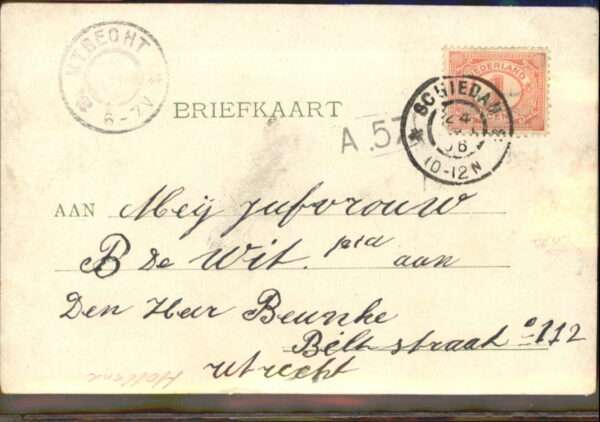 UTRECHT
6-7V
BRIEFKAART
NEDERLAND
SCHIEDAM
24
06
10-12N
A.57
AAN Meij jufvrouw
B De Wit. p/a aan
Den Heer Beunke
Bilt straat No 112
utrecht
Holland